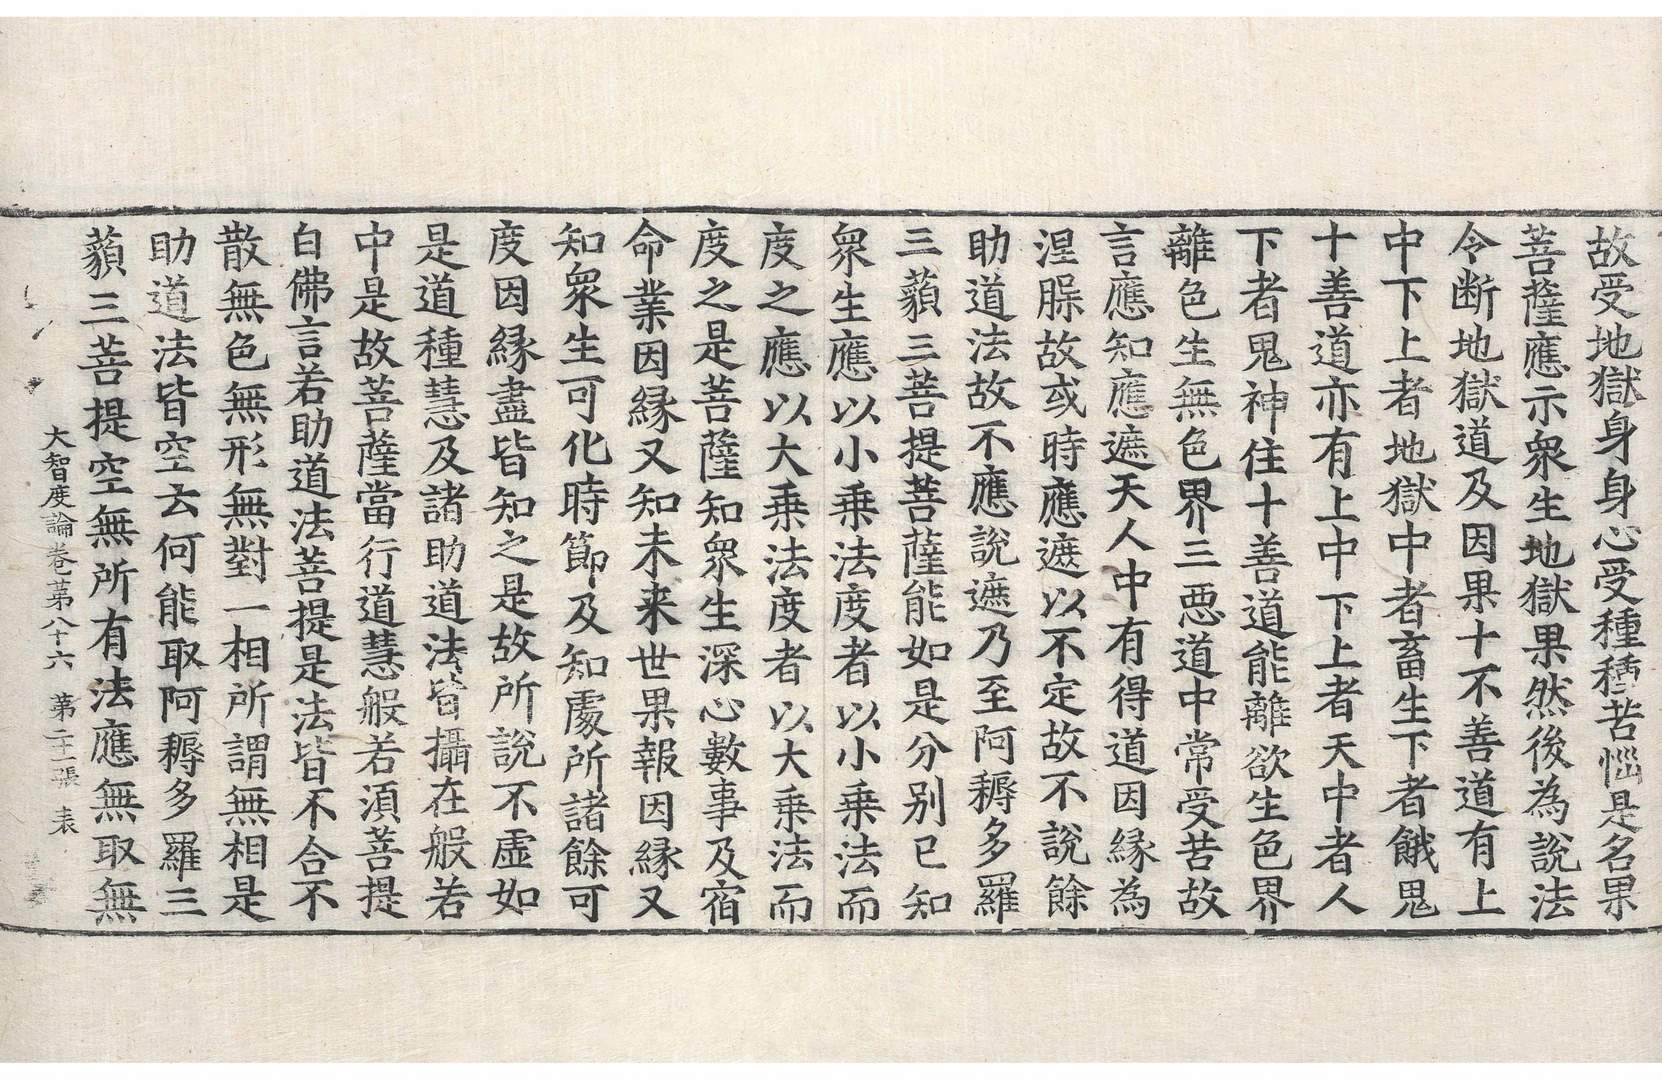 故受地獄身身心受種種苦惱是名果
菩薩應示衆生地獄果然後為說法
令断地獄道及因果十不善道有上
中下上者地獄中者畜生下者餓鬼
十善道亦有上中下上者天中者人
下者鬼神住十善道能離欲生色界
離色生無色界三惡道中常受苦故
言應知應遮天人中有得道因縁為
涅槃故或時應遮以不定故不說餘
助道法故不應說遮乃至阿耨多羅
三藐三菩提菩薩能如是分別已知
衆生應以小乗法度者以小乗法而
度之應以大乗法度者以大乗法而
度之是菩薩知衆生深心數事及宿
命業因縁又知未来世果報因縁又
知衆生可化時節及知處所諸餘可
度因縁盡皆知之是故所說不虛如
是道種慧及諸助道法皆攝在般若
中是故菩薩當行道慧般若湏菩提
白佛言若助道法菩提是法皆不合不
散無色無形無對一相所謂無相是
助道法皆空云何能取阿耨多羅三
藐三菩提空無所有法應無取無
大智度論卷苐八十六　苐二十一張　表